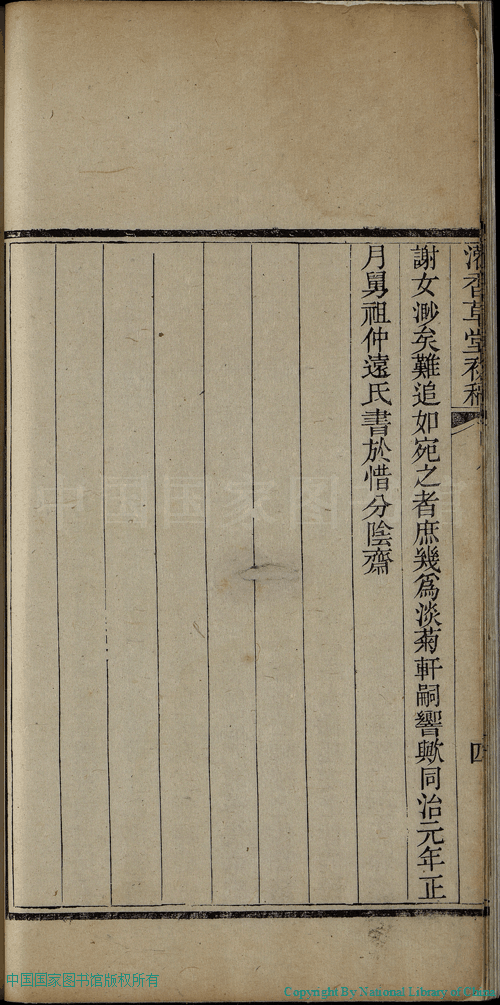 香草堂
謝女渺矣難追如宛之者庶幾為淡菊軒嗣響歟同治元年正
月舅祖仲遠氏書於惜分陰齋
四
中国国家图书馆
中国国家图书馆版权所有
Copyright By National Library of China